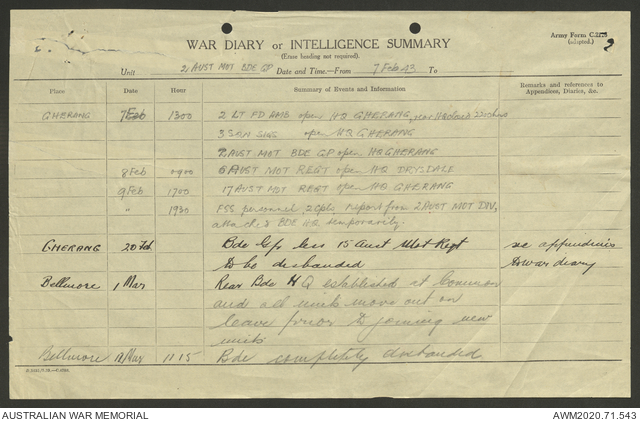 Army Form C.2118
(adapted.)
WAR DIARY or INTELLIGENCE SUMMARY
(Erase heading not required).
Unit 2 AUST MOT BDE GP Date and Time.—From 7 Feb 43 To
Place Date Hour Summary of Events and Information Remarks and references to Appendices, Diaries, &c.
GHERANG 7 Feb 1300 2 LT FD AMB open HQ GHERANG, near
3 SQN SIGS open HQ GHERANG
2 AUST MOT BDE GP open HQ GHERANG
8 Feb 0900 6 AUST MOT REGT open HQ DRYSDALE
9 Feb 1700 17 AUST MOT REGT open HQ GHERANG
" 1930 FSS personnel, 2 Cpls, report from 2 AUST MOT DIV,
attached BDE HQ temporarily.
GHERANG 20 Feb Bde Gp less 15 Aust Mot Regt see appendices
to be disbanded to war diary
Bellmore 1 Mar Rear Bde HQ established at
and all units move out on
leave prior to joining new
units
Bellmore 12 Mar 1115 Bde completely disbanded
AUSTRALIAN WAR MEMORIAL AWM2020.71.543